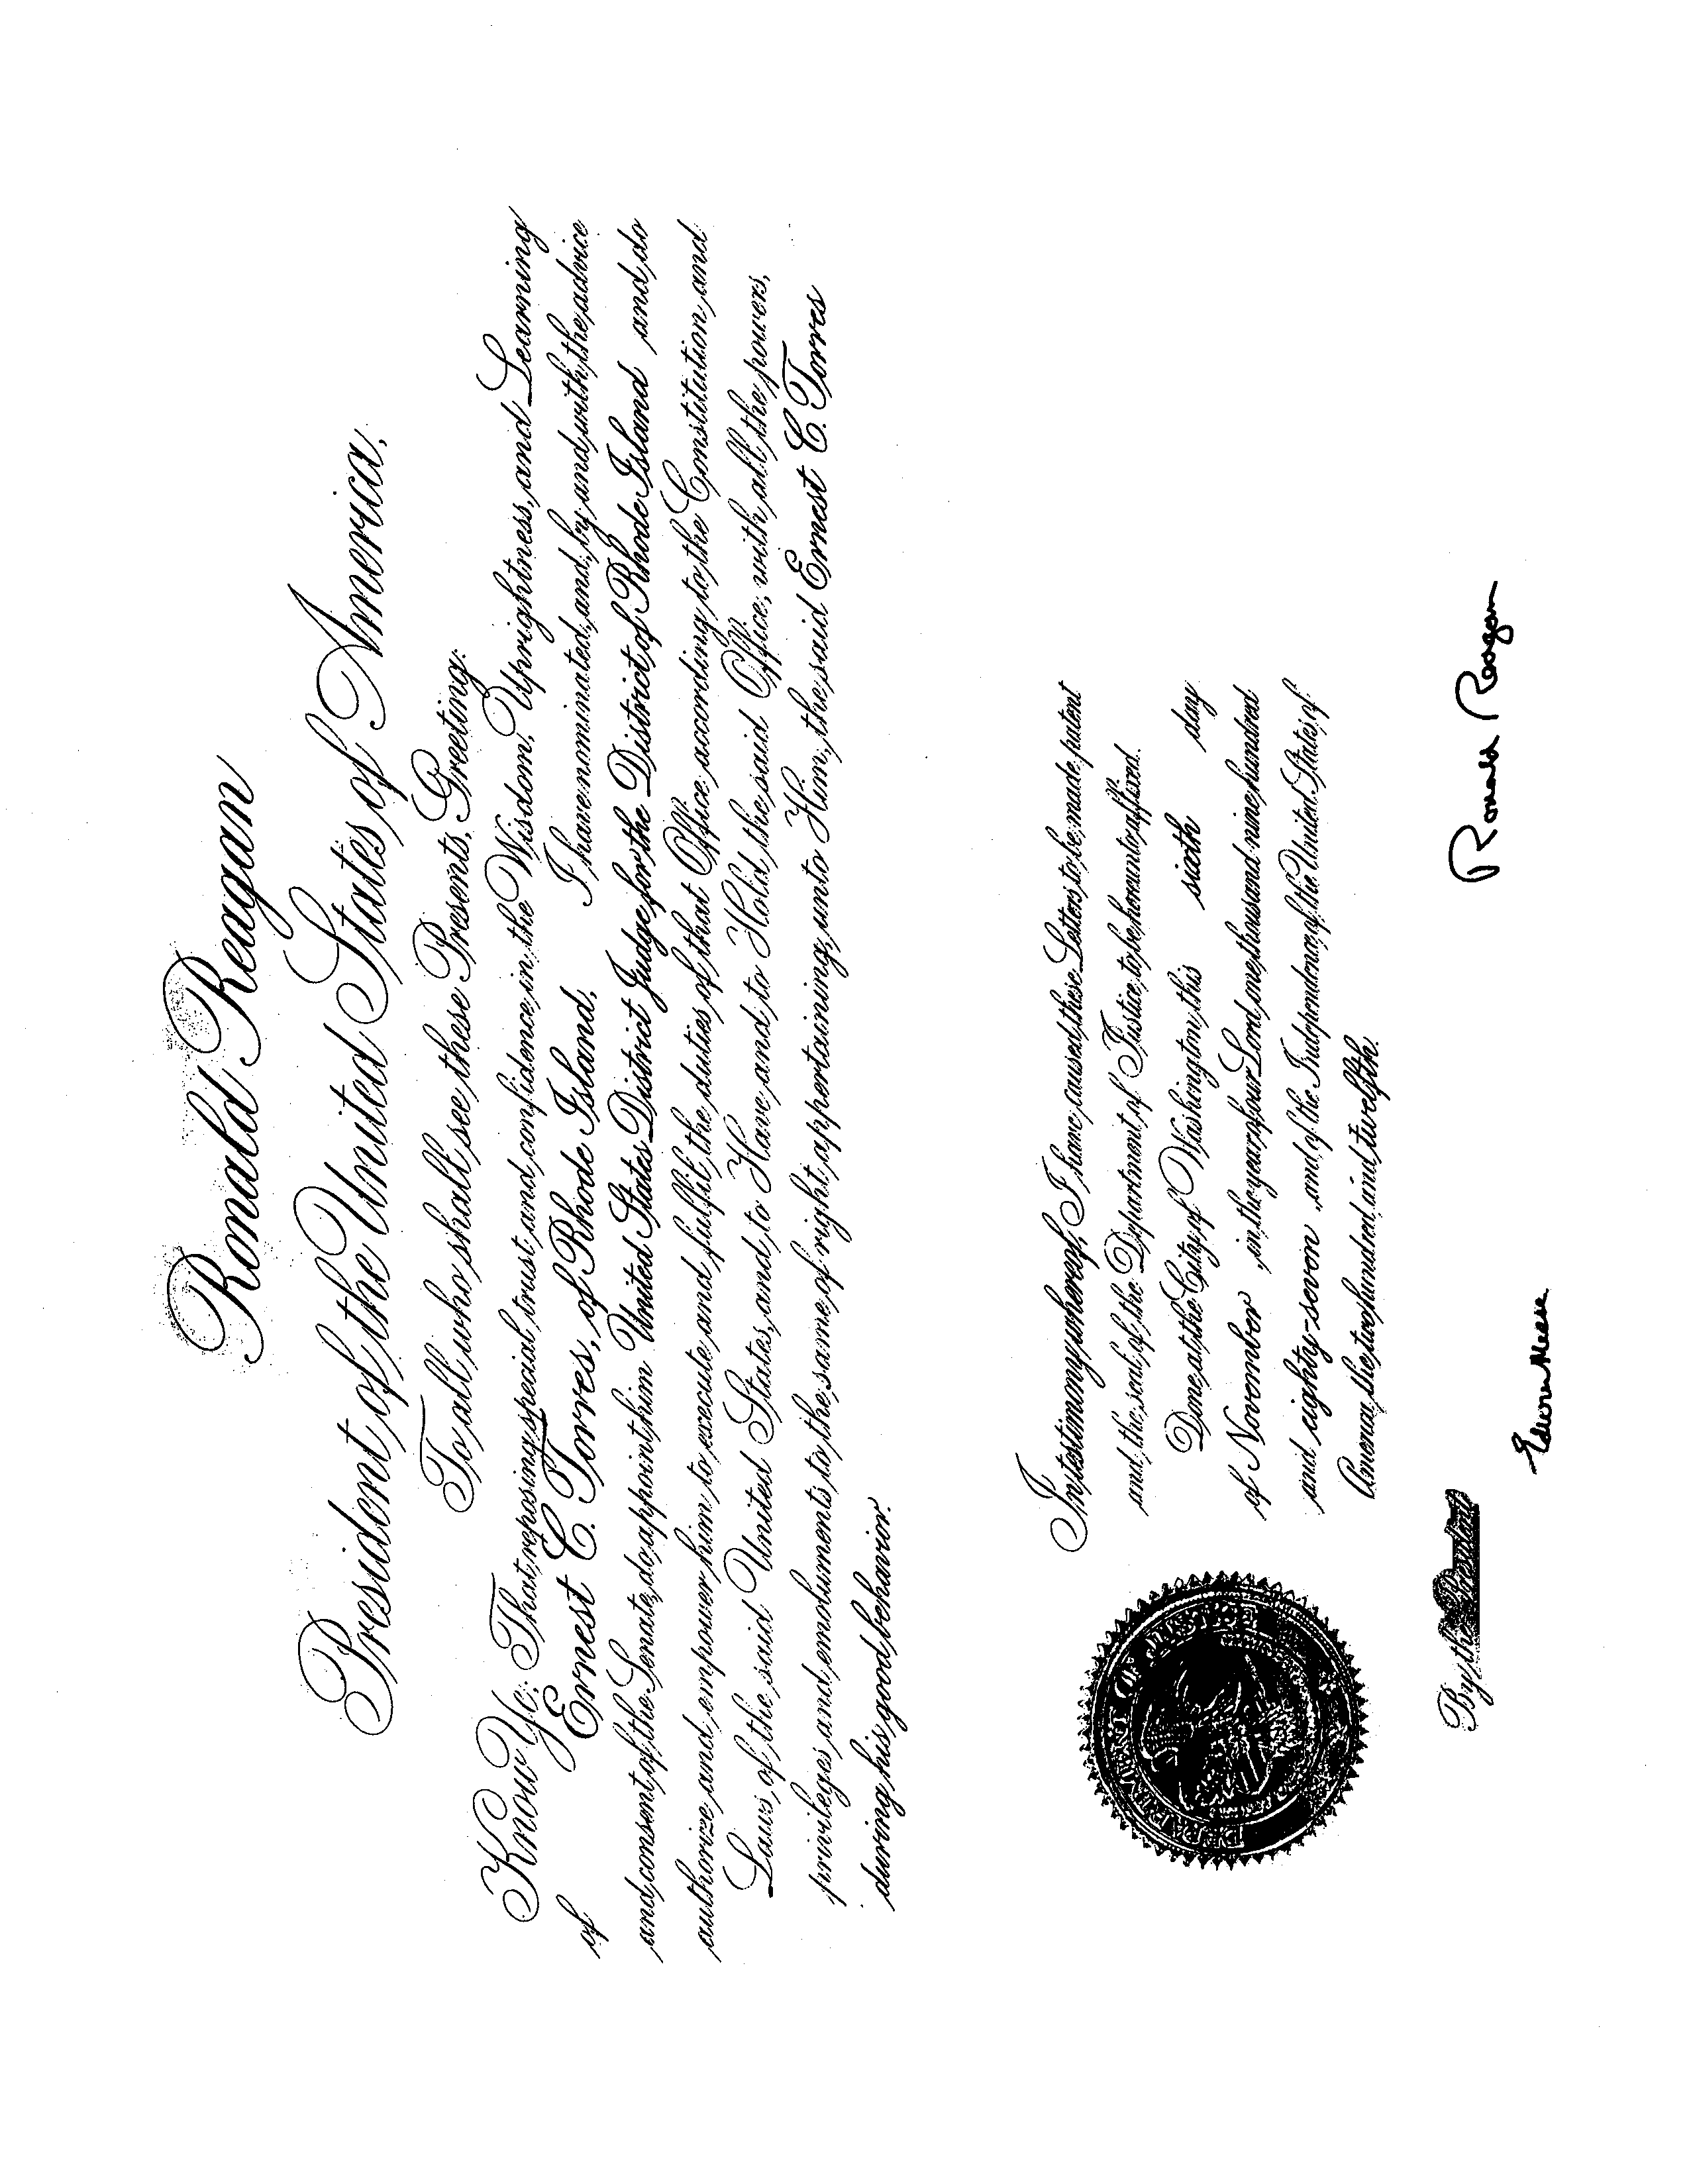 Ronald Reagan
President of the United States of America,
To all who shall see these Presents, Greeting:
Know Ye; That reposing special trust and confidence in the Wisdom, Uprightness, and Learning
of Ernest C. Torres, of Rhode Island, I have nominated, and, by and with the advice
and consent of the Senate, do appoint him United States District Judge for the District of Rhode Island and do
authorize and empower him to execute and fulfil the duties of that Office according to the Constitution and
Laws of the said United States, and to Have and to Hold the said Office, with all the powers,
privileges and emoluments to the same of right appertaining, unto Him, the said Ernest C. Torres
during his good behavior.
In testimony whereof, I have caused these Letters to be made patent
and the seal of the Department of Justice to be hereunto affixed.
Done at the City of Washington this sixth day
of November in the year of our Lord one thousand nine hundred
and eighty-seven and of the Independence of the United States of
America the two hundred and twelfth.
DEPARTMENT OF JUSTICE
By the President
Ronald Reagan
Edwin Meese